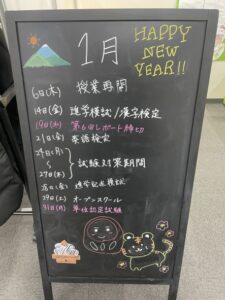 1月
HAPPY
NEW
YEAR!!
6日(木) 授業再開
14日(金) 進学模試/漢字検定
19日(水) 第6回レポート締切
21日(金) 英語検定
24日(月)
〜 試験対策期間
27日(木)
28日(金) 進学記述模試
29日(土) オープンスクール
31日(月) 単位認定試験